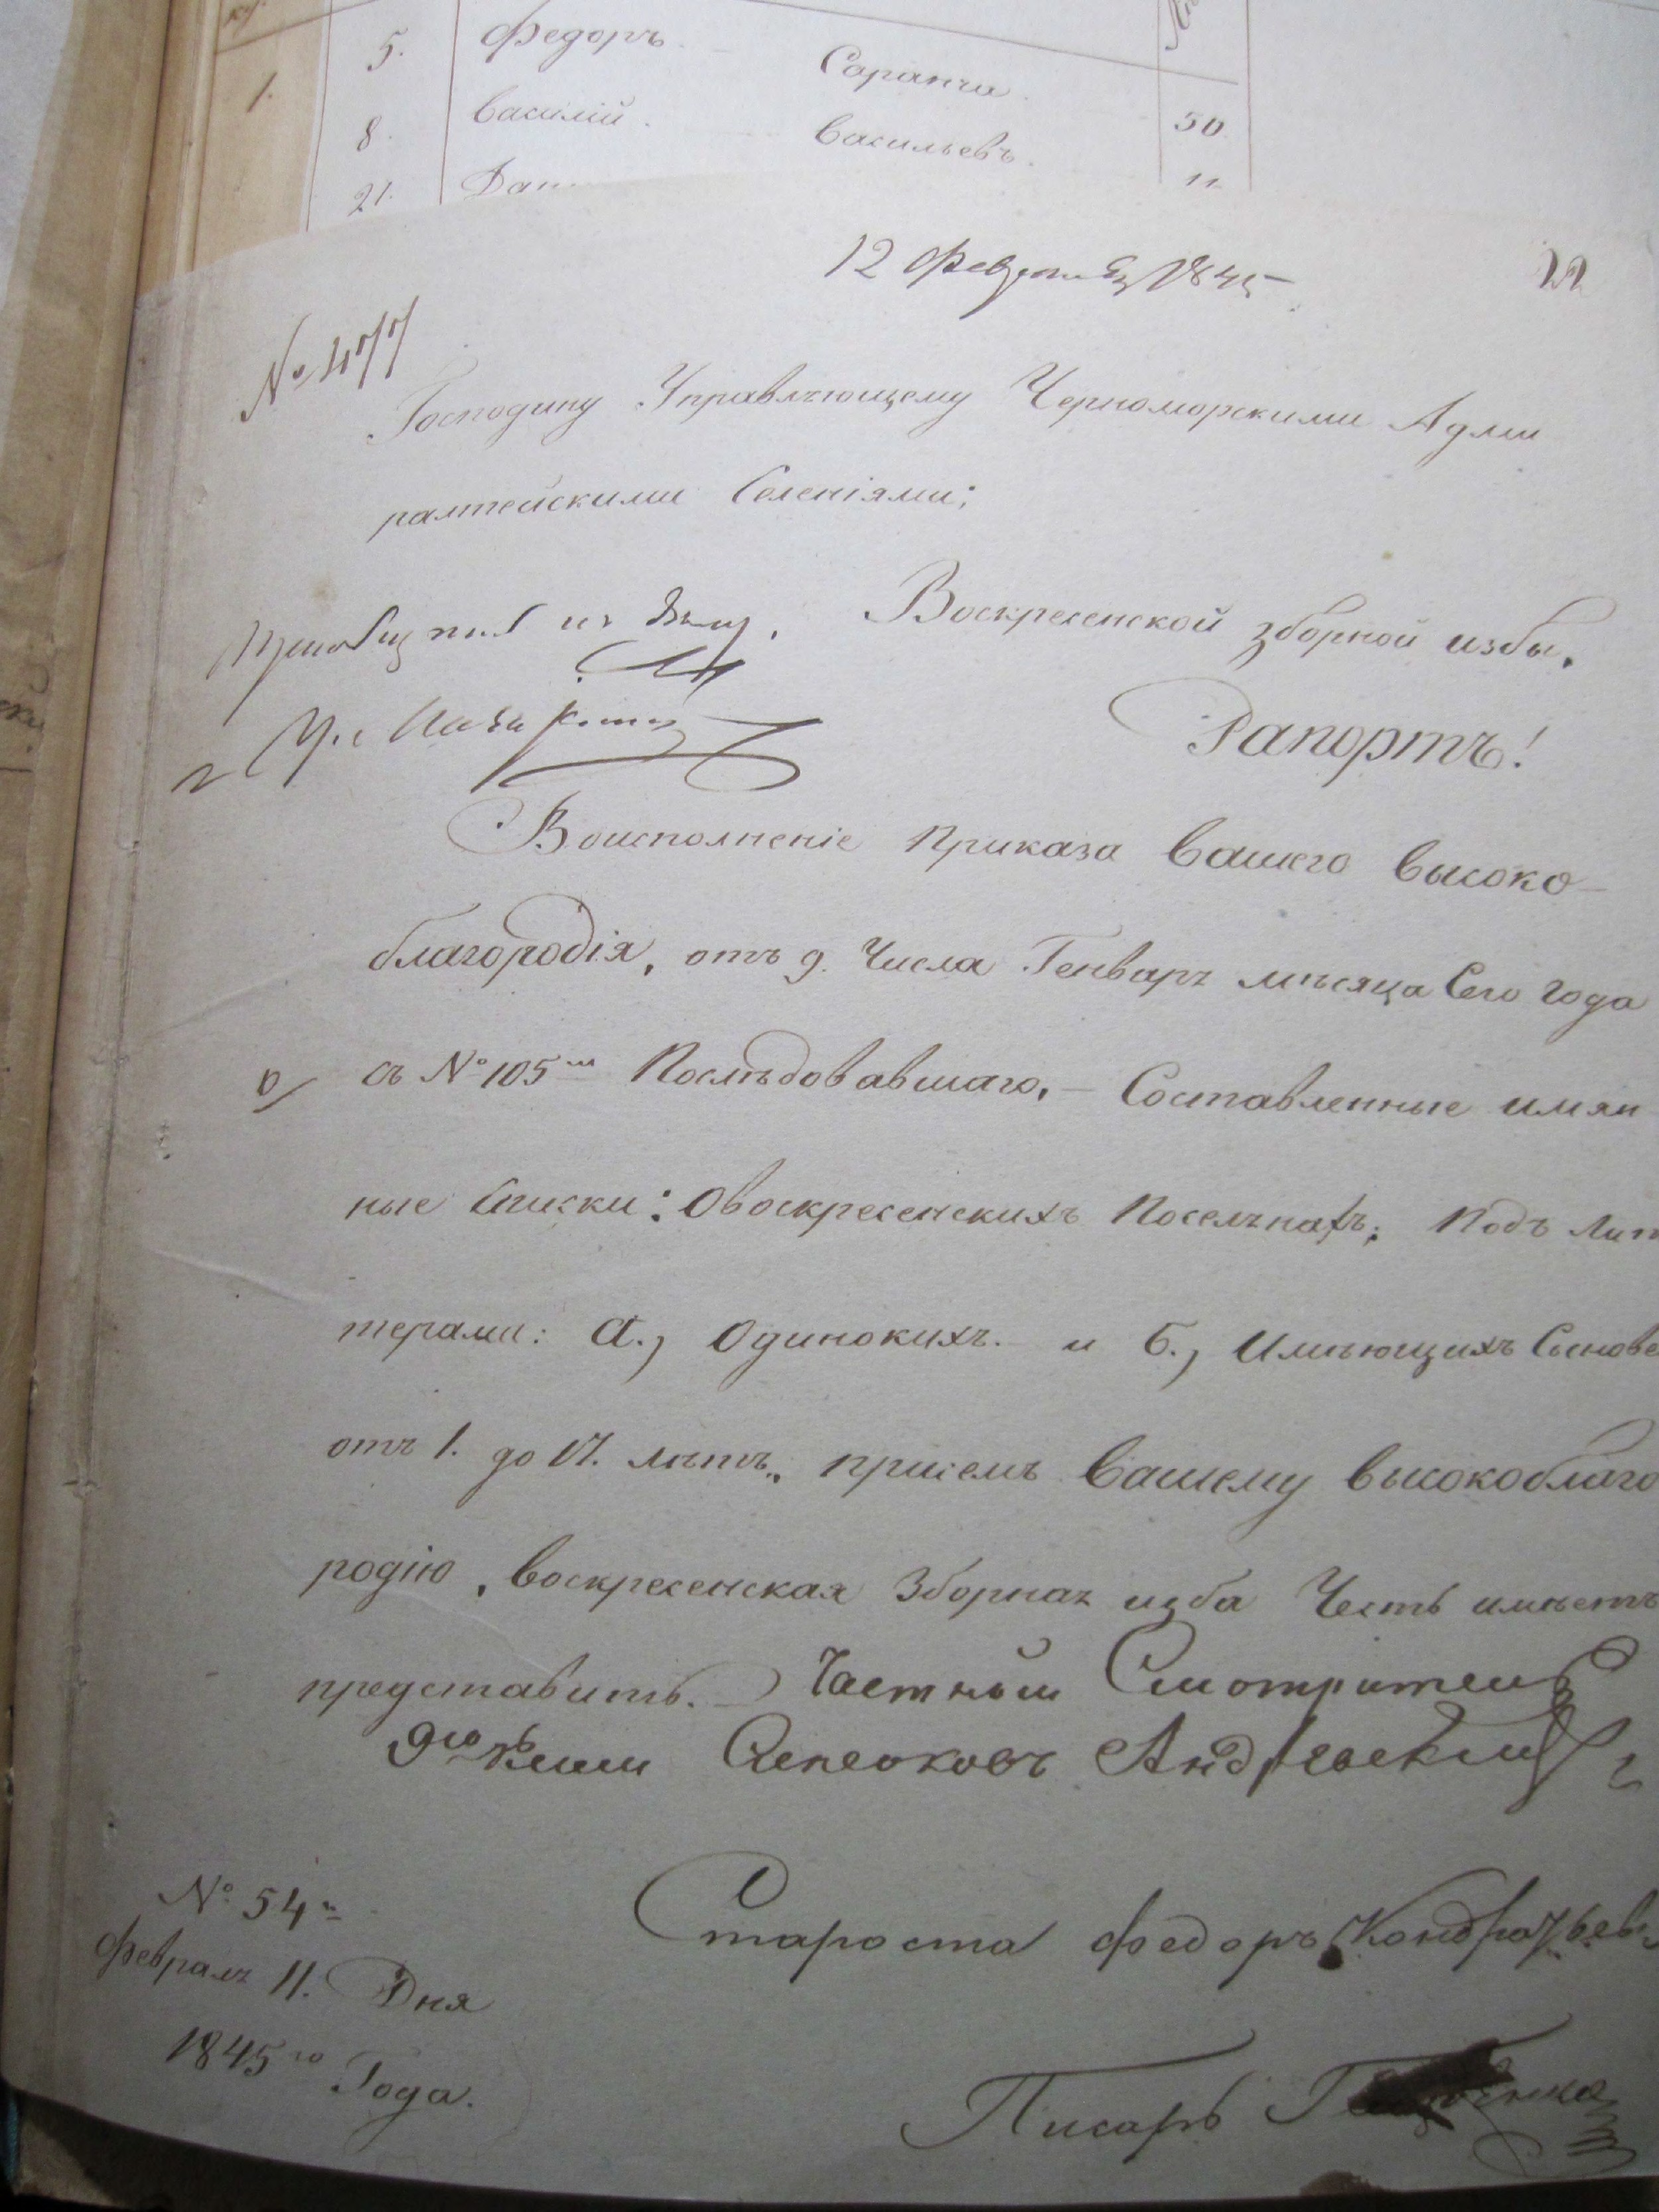 5. Федоръ Саранча 30
1. 8. Василій Васильевъ 11
21.
12 Февраля 1845
№ 477
Господину Управляющему Черноморскими Адми
ралтейскими Селеніями;
Воскресенской зборной избы,
Рапортъ!
Воисполненіе приказа Вашего Высоко-
благородія, отъ 9. Числа Генваря мѣсяца Сего Года
съ № 105м Послѣдовавшаго, — Составленные имян
ные Списки: Овоскресенскихъ Поселянахъ; Подъ Лит
терами: А., Одинокихъ. и Б., Имѣющихъ Сынове
отъ 1. до 17. лѣтъ., присемъ Вашему высокоблаго
родію, Воскресенская Зборная изба Честь имѣетъ
представить. — Частный Смотритель
Староста Федоръ Кондратьевъ
№ 54й
Февраля 11. Дня
1845го Года.
Писарь